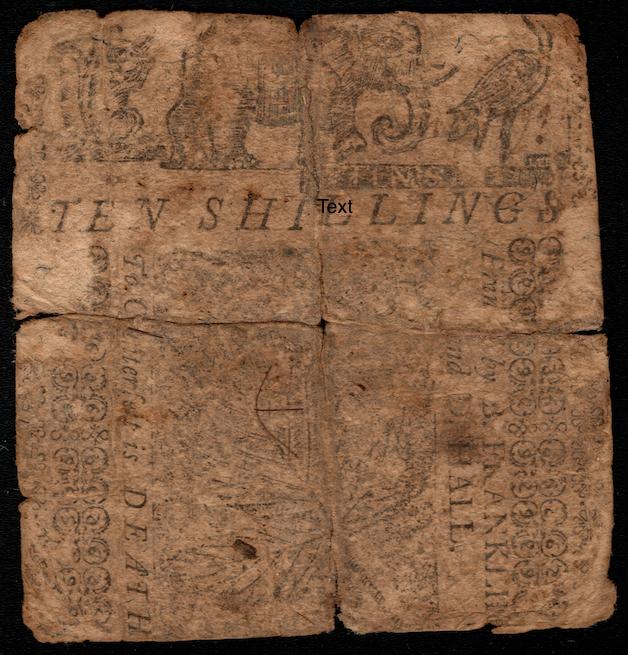 TEN SHILLINGS
Text
To Counterfeit is DEATH
by B. FRANKLIN
and D. HALL.